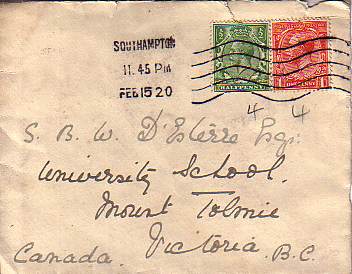 SOUTHAMPTON
11.45 PM
FEB 15 20
HALFPENNY
ONE PENNY
4 4
S. B. W. D'Esterre Esq:
University School.
Mount Tolmie
Victoria B.C.
Canada.